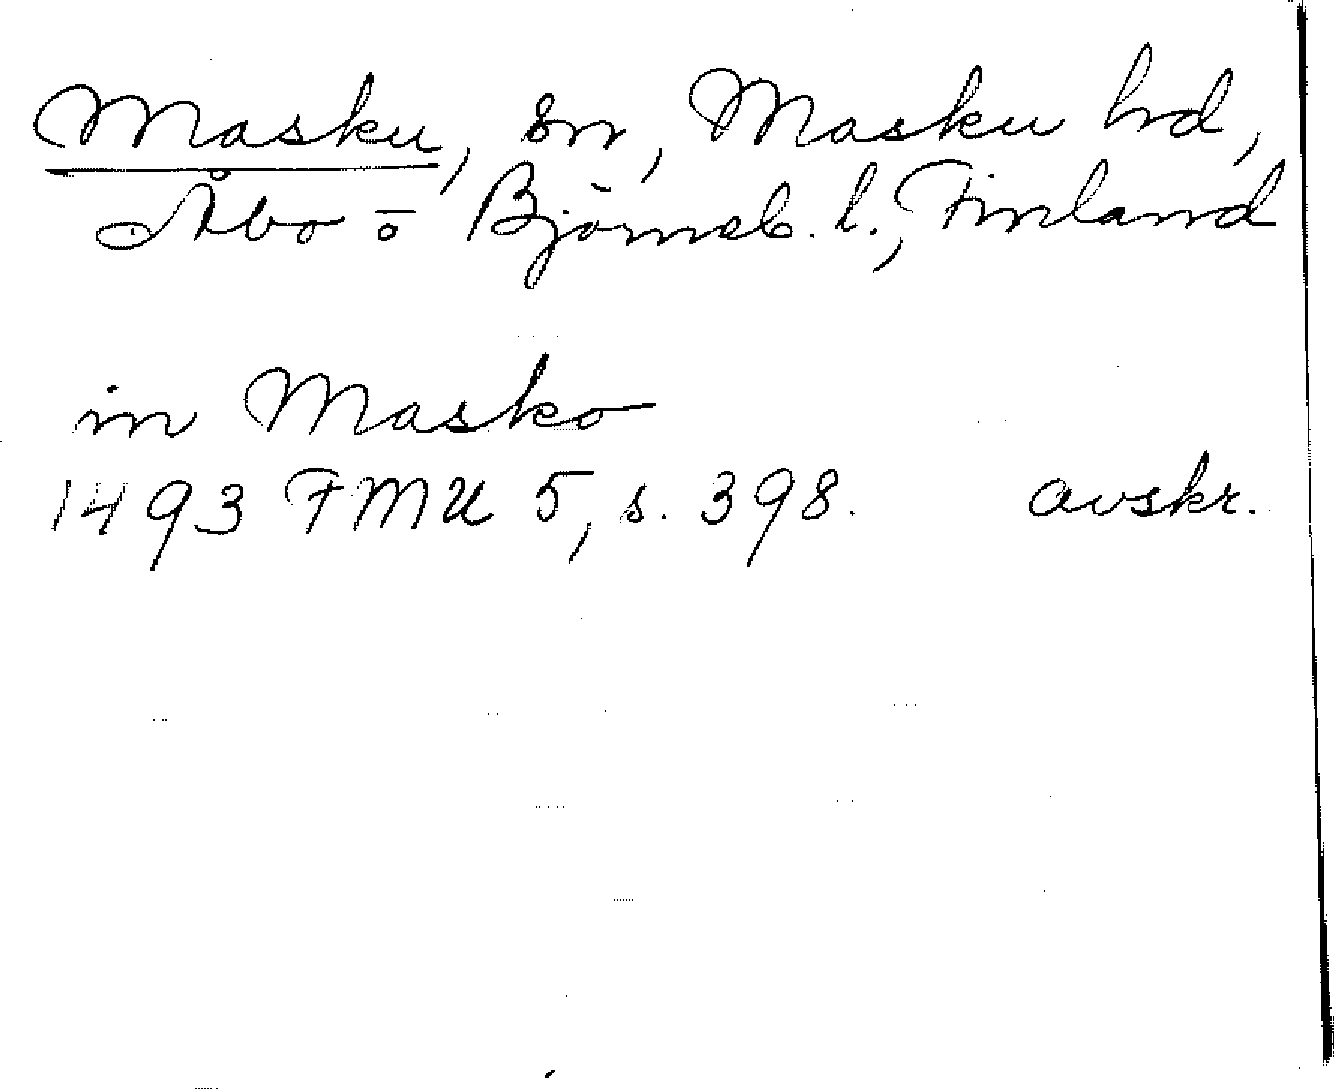 Masku, sn, Masku hd,
Åbo o. Björneb. l., Finland
in Masko
1493 FMU 5, s. 398. avskr.